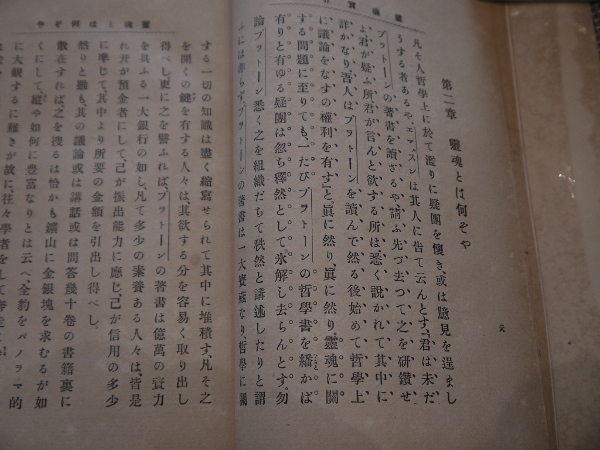 第二章 靈魂とは何ぞや
凡そ人哲學上に於て濫りに疑團を懷き、或は臆見を逞まし
うする者あるや、エマスンは其人に告て云んとす、君は未だ
プラトーンの著書を讀ざるや、請ふ先づ去つて之を研鑽せ
よ、君が疑ふ所、君が言んと欲する所は、悉く説かれて其中に
詳かなり、吾人はプラトーンを讀んで然る後始めて哲學上
に議論をなすの權利を有す」と、眞に然り、眞に然り、靈魂に關
する問題に至りても、一たびプラトーンの哲學書を繙かば
有りとある疑團は忽ち釋然として氷解し去らんとす、勿
論プラトーン悉く之を組織だちて秩然と講述したりと謂
ふには非らず、プラトーンの著書は一大寶藏なり、哲學に關
靈魂とは何ぞや
する一切の知識は盡く縮寫せられて其中に堆積す、凡そ之
を開くの鍵を有する人々は、其欲する分を容易く取り出し
得べし、更に之を譬ふれば、プラトーンの著書は億萬の資力
を具ふる一大銀行の如し、凡て多少の素養ある人々は、皆是
れ幷が預金者にして、己が振出能力に應じ、己が信用の多少
に準じて、其中より所要の金額を引出し得べし、
然りと雖も、其の議論或は講話或は問答幾十卷の書籍裏に
散在すれば、之を搜るは恰かも鑛山に金銀塊を求むるが如
くにして、縱や如何に豐富なりとは云へ、全豹をパノラマ的
に大觀するに難きが故に、往々學者をして